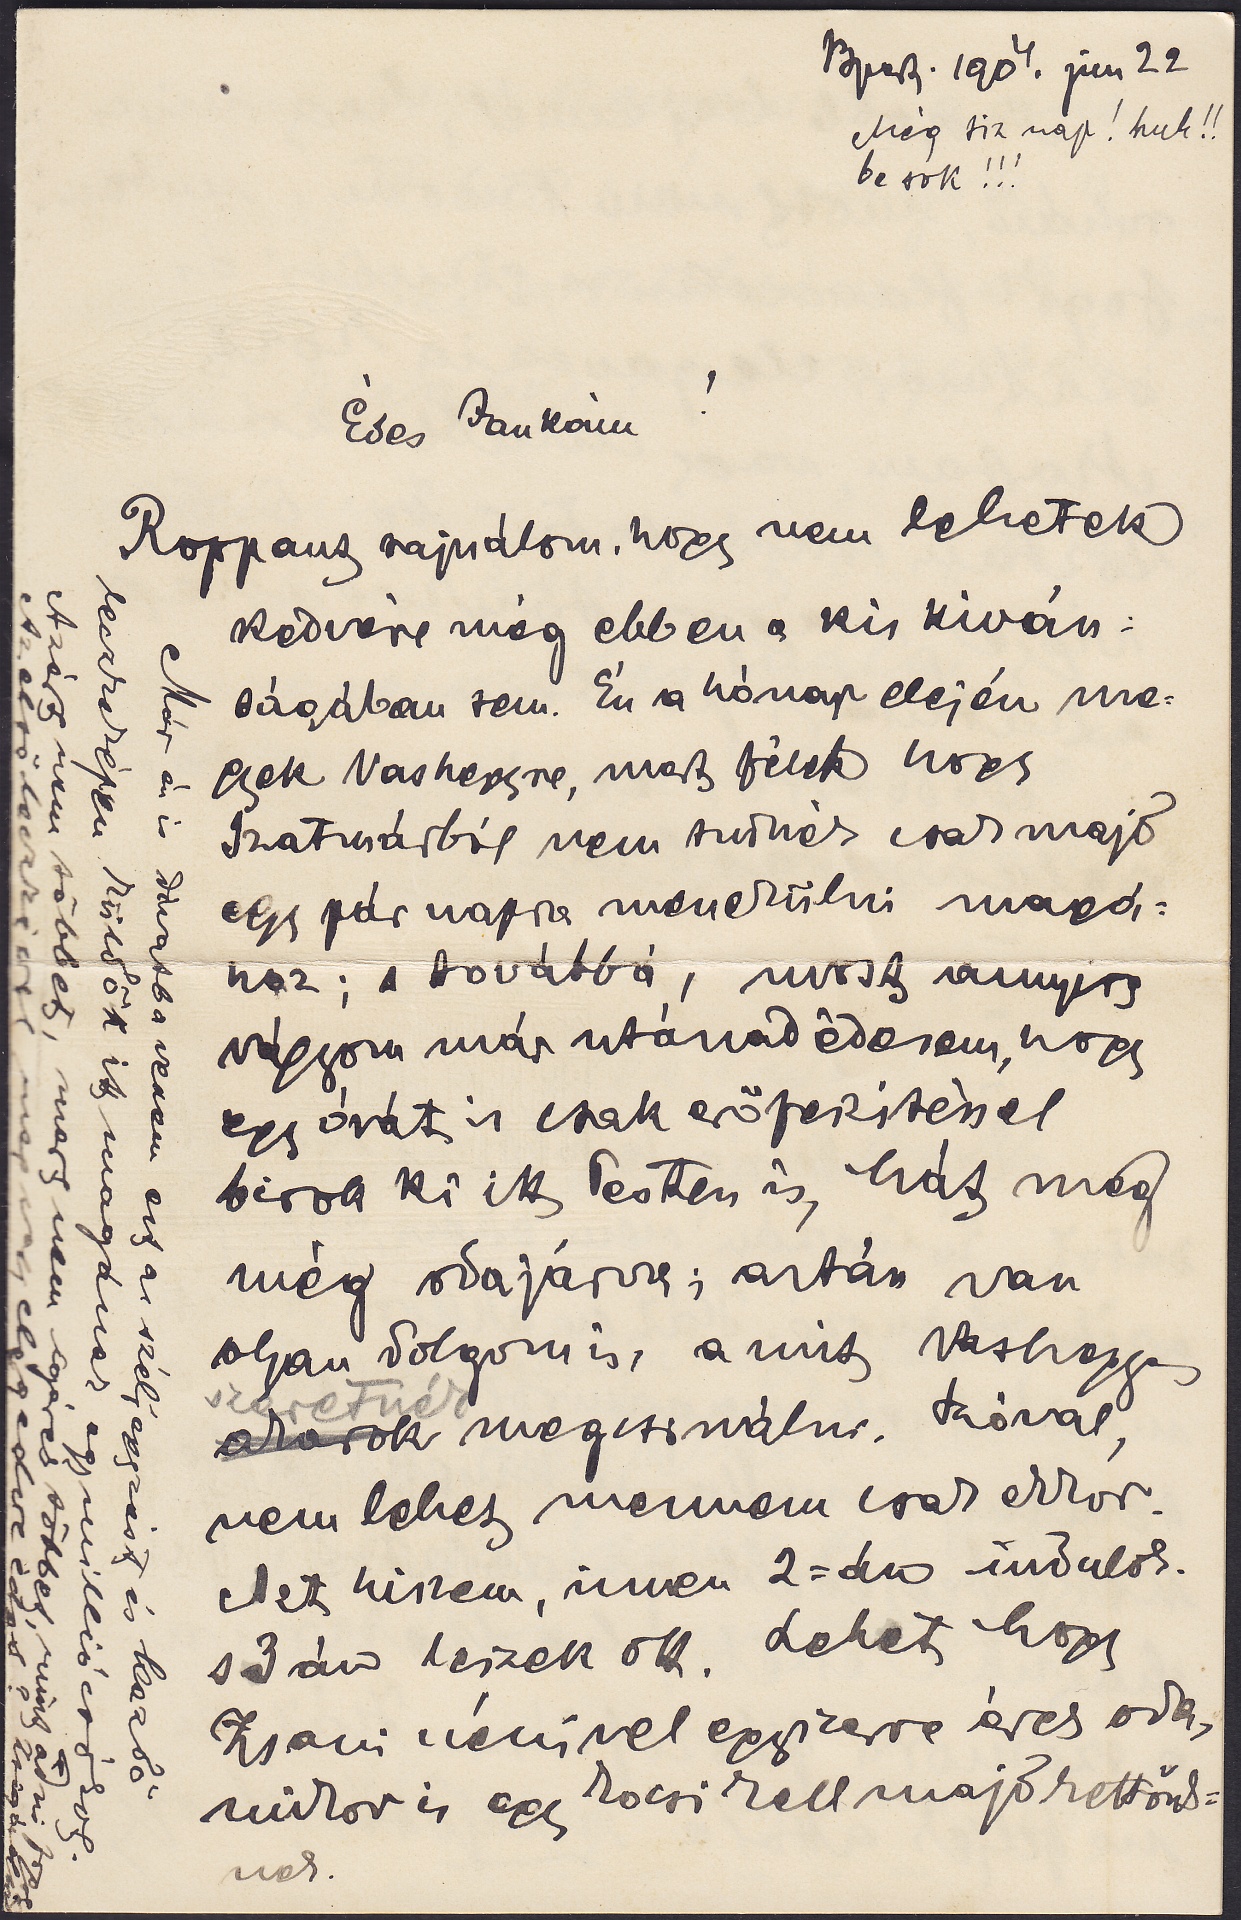 Bpest. 1904. jun 22
Még tiz nap! huh!!
be sok!!!
Édes Jankám!
Roppant sajnálom, hogy nem lehetek
kedvére még ebben a kis kiván=
ságában sem. Én a hónap elején me=
gyek Vashegyre, mert félek hogy
Szatmárból nem tudnék csak majd
egy pár napra menekülni magá=
hoz; s továbbá, most annyira
vágyom már utánad édesem, hogy
egy órát is csak erőfeszitéssel
birok ki itt Pesten is, hát meg
még odajárva; aztán van
olyan dolgom is, a mit Vashegyen
szeretnék
akarok megcsinálni. Szóval,
nem lehet mennem csak ekkor.
Azt hiszem, innen 2=án indulok.
s 3án leszek ott. Lehet hogy
Zsani nénivel egyszerre érek oda,
mikor is egy kocsi kell majd kettőnk=
nek.
Már én is divatba veszem ezt a széljegyzést és kezdő
leczkeképen küldök itt magának egy millió csókot.
Azért nem többet, mert nem igérek többet, mint adni fogok
Az első leczkével meg van elégedve édes?